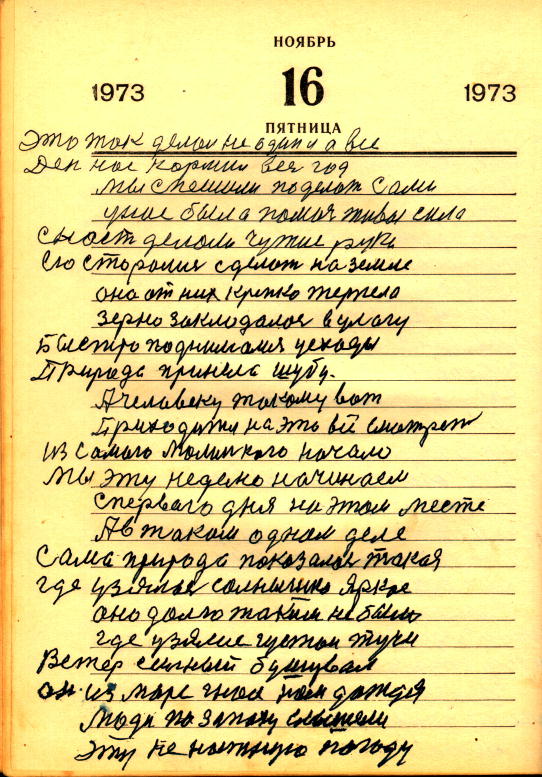 НОЯБРЬ
1973 16 1973
ПЯТНИЦА
Это так делал не один а все
Ден нас кормил вся год
мы спешили поделат сами
унас была помоч живы сила
делали чужие руки
Ево старалис сделат на земле
она от них крепко терпела
Зерно закладалос в улагу
Быстро поднималис усходы
Природа принела шубу.
А человеку такому вот
Приходитжи на это всё смотрет
из самого малинкого начало
Мы эту неделю начинаем
спервого дня на этом месте
Ав таком одном деле
Сама природа показалос такая
Где узялося солнышко яркое
оно долго таким не было
где узялис густои тучи
Ветер силный бушувал
он из море гнал нам дождя
Люди по запаху слышели
Эту не настную погоду